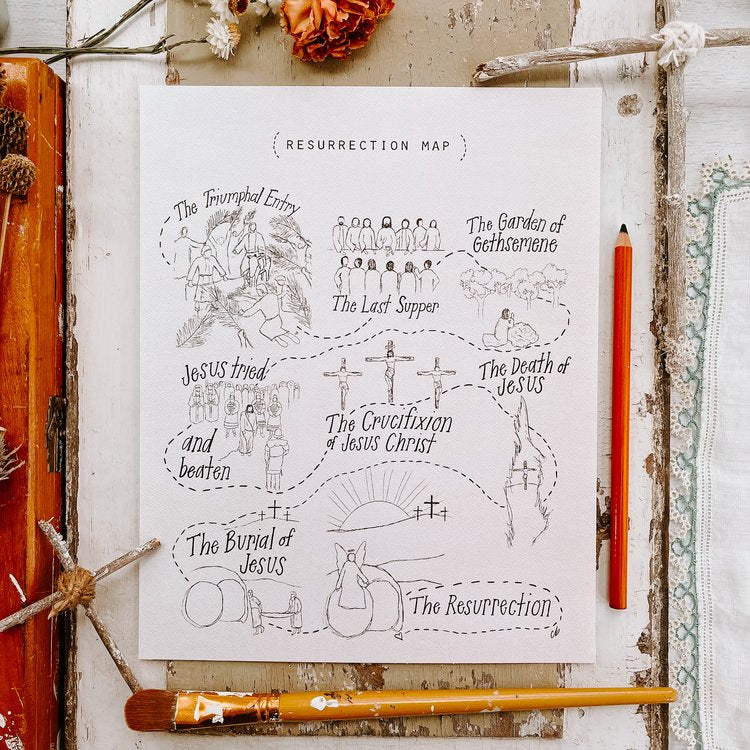 RESURRECTION MAP
The Triumphal Entry
The Last Supper
The Garden of
Gethsemene
Jesus tried
and
beaten
The Crucifixion
of Jesus Christ
The Death of
Jesus
The Burial of
Jesus
The Resurrection